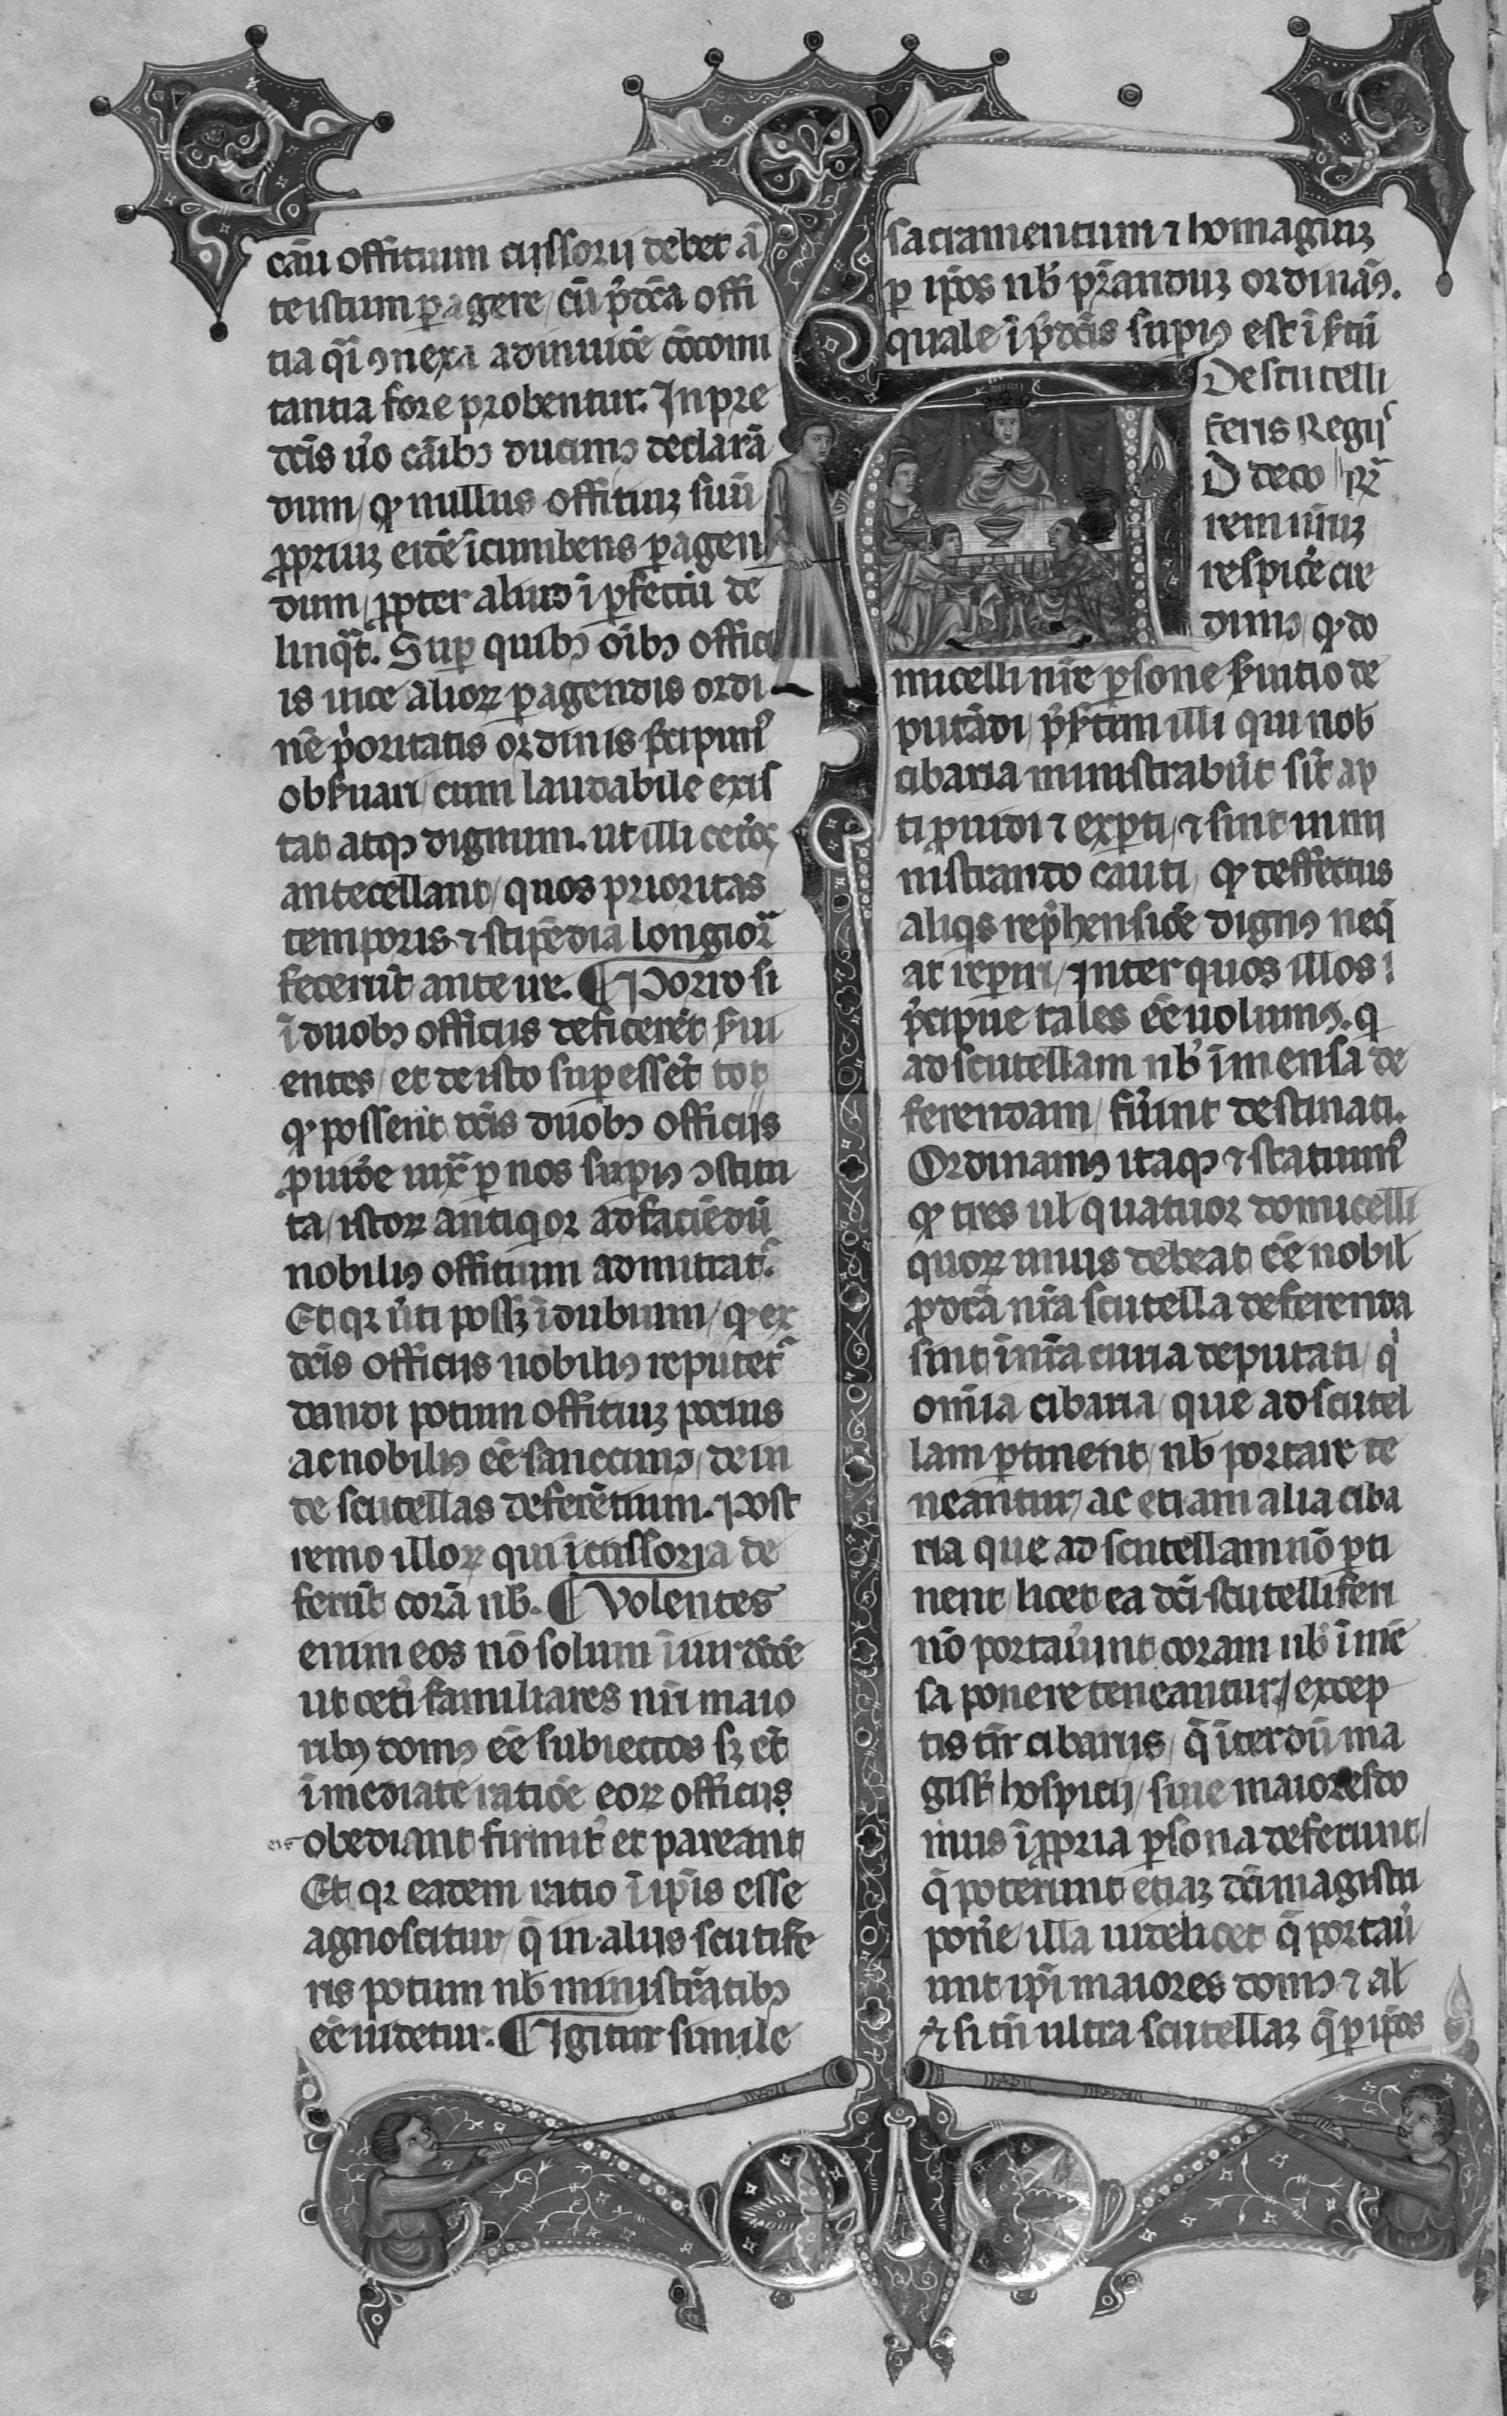 cāu offitium cissorii debet ā
te istum p̄agere / cū p̄dc̄a offi
tia q̄i ꝯnexa adinuicē cōcomi
tantia fore probentur. In pre
dcīs u̾o cāibꝫ ducimꝰ declarā
dum / ꝙ nullus offitiuꝫ suū
ꝓpriuꝫ eidē īcumbens ꝑagen
dum / ꝓpter aliud ī ꝑfectū de
linq̄t. Suꝑ quibꝫ oībꝫ offici
is uice alioꝝ ꝑagendis ordi
nē p̾oritatis ordinis p̄cipim̾
obs̾uari / cum laudabile exis
tat atqꝫ dignum. ut illi cet̾os
antecellant / quos prioritas
temporis ⁊ stipēdia longiora
fecerūt anteire. ¶ Porro si
ī duobꝫ officiis deficerēt s̾ui
entes / et de isto suꝑessēt tot
ꝙ possent dcīs duobꝫ officiis
ꝓuidē iux̄ ꝑ nos supiꝰ ꝯstitu
ta / istoꝝ antiq̾or ad faciēdū
nobiliꝰ offitium admittat̾.
Et qꝛ u̾ti possꝫ ī dubium / ꝙ ex
dcīs officiis nobiliꝰ reputet̾
dandi potum offitiuꝫ pocius
ac nobiliꝰ eē sanccimꝰ / dein
de scutellas deferētium. Post
remo illoꝝ qui īcissoria de
ferūt corā nb̄. ¶ Volentes
enim eos nō solum ī uirtute
ut cet̾i familiares nr̄i maio
ribꝰ domꝰ eē subiectos sꝫ et̄
īmediate ratiōe eoꝝ officiis
obediant firmit̾ et pareant
Et qꝛ eadem ratio ī ip̄is esse
agnoscitur / q̄ in aliis scutife
ris potum nb̄ ministrātibꝫ
eē uidetur. ¶ Igitur simile
sacramentum ⁊ homagiuꝫ
ꝑ ip̄os nb̄ p̄standuꝫ ordināꝰ.
quale ī p̄dcīs supiꝰ est īs̾tū
De scutelli
feris Regis̾
D deco
rem nimiꝫ
respic̾e cre
dimꝰ / ꝙ do
micelli nr̄e ꝑsone s̾uitio de
putādi / p̾s̾tim illi qui nob̄
cibaria ministrabūt sīt ap
ti ꝓuidi ⁊ exꝑti / ⁊ sint in mi
nistrando cauti / ꝙ deffectus
aliq̾s rep̾hensiōe dignꝰ neq̄
at reꝑiri / Inter quos illos
p̾cipue tales eē uolumꝰ. q̄
ad scutellam nb̄ ī mensa de
ferendam / fu̾int destinati.
Ordinamꝰ itaqꝫ ⁊ statuim̾
ꝙ tres ul̄ quatuor domicelli
quoꝝ unus debeat eē nobil̄
ꝓ dcā nr̄a scutella deferenda
sint ī nr̄a curia deputati / q̾
omīa cibaria / que ad scutel
lam ꝑtinent / nb̄ portare te
neantur / ac etiam alia ciba
ria que ad scutellam nō ꝑti
nent / licet ea dcī scutelliferi
nō portau̾int coram nb̄ ī mē
sa ponere teneantur / excep
tis tn̄ cibariis / q̄ īterdū ma
gistri hospicii / siue maiores do
mus ī ꝓpria ꝑsona deferunt /
q̄ poterunt etiaꝫ dcī magistri
pon̾e / illa uidelicet q̄ portau̾
int ip̄i maiores domꝰ ⁊ al̄
⁊ si tn̄ ultra scutellaꝫ q̄ ꝑ ip̄os